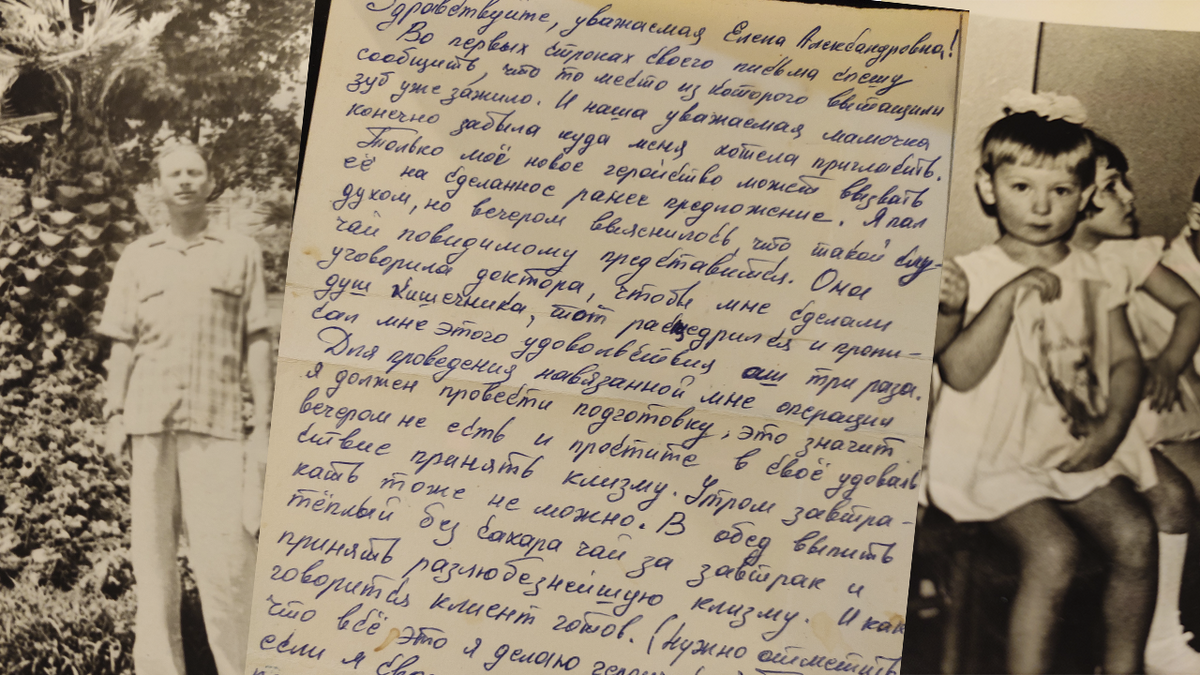 Здравствуйте, уважаемая Елена Александровна!
Во первых строках своего письма спешу
сообщить, что то место из которого вытащили
зуб уже зажило. И наша уважаемая мамочка
конечно забыла куда меня хотела пригласить.
Только моё новое геройство может вызвать
её на сделанное ранее предложение. Я пал
духом, но вечером выяснилось, что такой слу-
чай повидимому представится. Она
уговорила доктора, чтобы мне сделали
душ кишечника, тот расщедрился и пропи-
сал мне этого удовольствия аш три раза.
Для проведения навязанной мне операции
я должен провести подготовку, это значит
вечером не есть и простите в своё удоволь
ствие принять клизму. Утром завтра-
кать тоже не можно. В обед выпить
тёплый без сахара чай за завтрак и
принять разлюбезнейшую клизму. И как
говорится клиент готов. (Нужно отметить
что всё это я делаю
если я